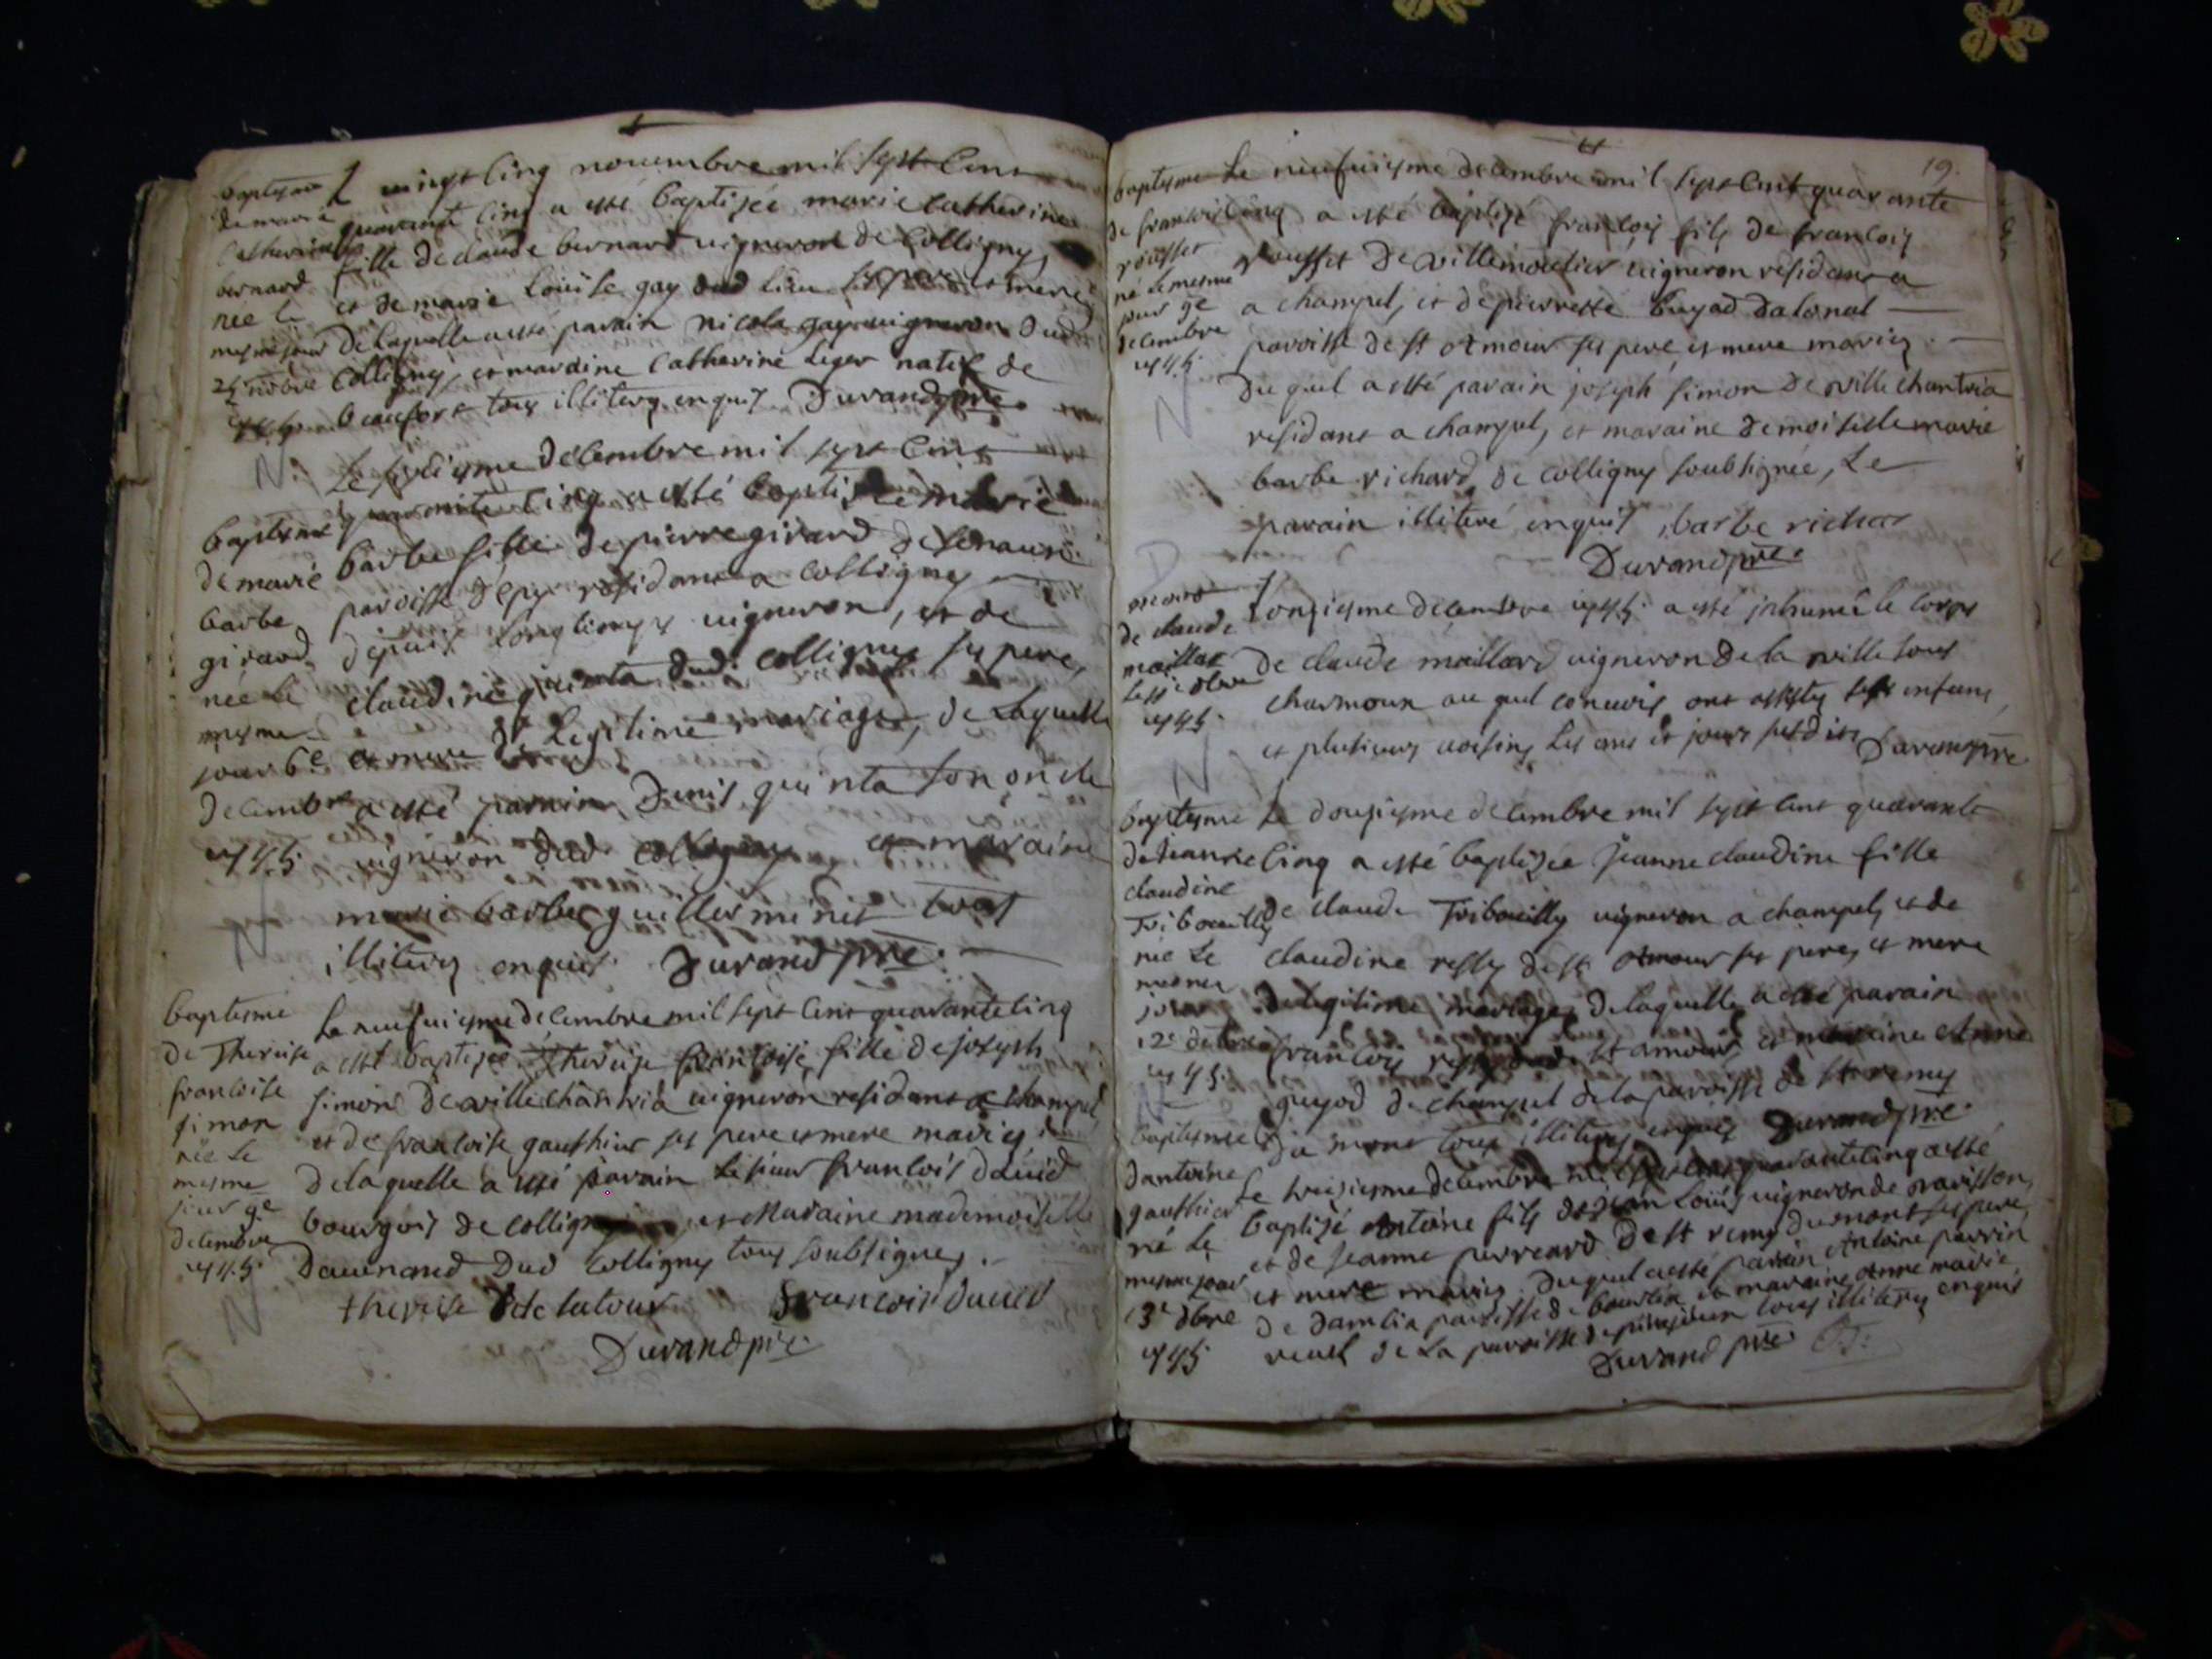 baptesme
de marie
Catherine
bernard
née le
mesme jour
25 nobre
1745
L vingt cinq novembre mil sept Cent
quarante cinq a esté baptizée marie Catherine
fille de claude bernard vigneron de Colligny,
et de marie Loüise gay dud lieu ses pere et mere,
De laquelle a esté parain nicola gay vigneron dud
Colligny, et maraine Catherine Leger natif de
beaufort tous illiterez enquis Durand pre.
N
baptesme
de marie
barbe
girard
née le
mesme
jour 6e
decembre
1745
Le sixiesme decembre mil sept Cent
quarante Cinq a esté baptisée marie
barbe fille de pierre girard de senaux
paroisse depy residant a Colligny
depuis longtemps vigneron, et de
claudine quinta dud. Colligny ses pere,
et mere de Legitime mariage, de Laquelle
a esté parain Denis quinta son oncle
vigneron dud Colligny et maraine
marie barbe guillerminet tous
illiterez enquis Durand pre.
N
baptesme
de Therese
francoise
simon
née le
mesme
jour 9e
decembre
1745
Le neufviesme decembre mil sept Cent quarante cinq
a esté baptizée Therese francoise fille de joseph
simon de villechantria vigneron residant a champel
et de francoise gauthier ses pere et mere mariez
de laquelle a esté parain Le sieur francois david
bourgois de Colligny et Maraine mademoiselle
Dud Colligny tous soubsignez.
therese de latour francois david
Durand pre
N
19.
baptesme
de francois
rousset
né le mesme
jour 9e
decembre
1745
Le neufviesme decembre mil sept Cent quarante
cinq a esté baptizé francois fils de francois
rousset de villemoutier vigneron residant a
a champel, et de pierrette buyod dalonal
paroisse de st Amour ses pere, et mere mariez.
Du quel a esté parain joseph simon de ville chantria
residant a champel, et maraine demoiselle marie
barbe richard de Colligny soubsignée, Le
parain illiteré enquis, barbe richar
Durand pre.
N
D
de claude
maillar
1745
L onziesme decembre 1745. a esté inhumé le Corps
de claude maillard vigneron de la ville sous
charmoux au quel convois ont assisty ses enfans,
et plusieurs voisins Les ans et jours susdits Durand pre.
N
baptesme
de jeanne
claudine
Tribouilly
née le
mesme
jour
12e debre
1745.
Le douziesme decembre mil sept Cent quarante
cinq a esté baptizée jeanne claudine fille
de claude Tribouilly vigneron a champel, et de
claudine ressy de st Amour ses pere, et mere
de legitime mariage, de laquelle a esté parain
francois ressy dud. st amour, et maraine Anne
guyod de champel de la paroisse de st remy
du mont tous illiterez enquis Durand pre.
baptesme
dantoine
gauthier
né le
mesme jour
13e dbre
1745
Le treiziesme decembre mil sept Cent quarante cinq a esté
baptizé Antoine fils de jean Loüis vigneron de
et de jeanne perreard de st remy du mont ses pere,
et mere mariez. Du quel a esté parain Antoine perrin
de Damlia paroisse de et maraine Anne marie
de La paroisse de tous illiterez enquis
Durand pre.